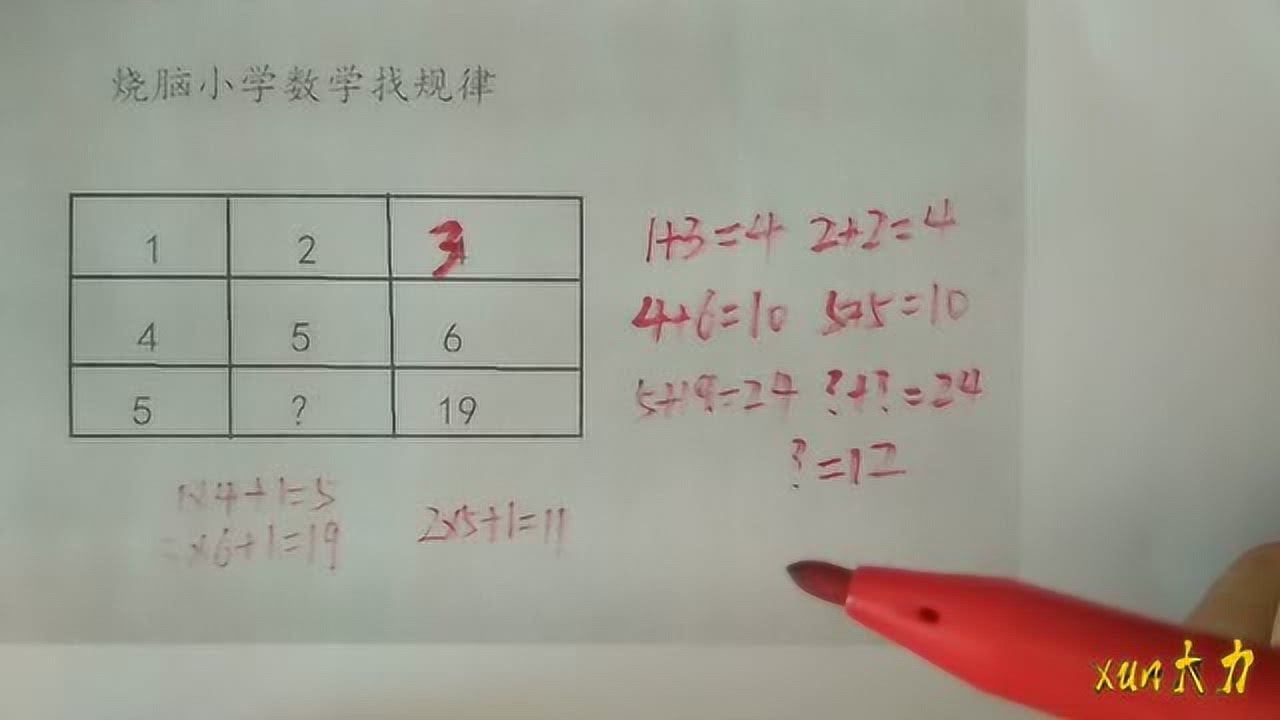 烧脑小学数学找规律
1 2 3
4 5 6
5 ? 19
1+3=4 2+2=4
4+6=10 5+5=10
5+19=24 ?+?=24
?=12
1×4+1=5
×6+1=19
2×5+1=11
xun大力